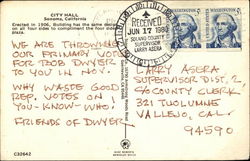 CITY HALL
Sonoma, California
Erected in 1906, Building has the same design
on all four sides to compliment the four sided
plaza.
RECEIVED
JUN 17 1980
SOLANO COUNTY
SUPERVISOR
LARRY ASERA
WE ARE THROWING
OUR PRIMARY VOTES
FOR BOB DWYER
TO YOU IN NOV.
WHY WASTE GOOD
REP. VOTES ON
YOU-KNOW-WHO!
FRIENDS OF DWYER
LARRY ASERA
SUPERVISOR DIST. 2
C/O COUNTY CLERK
321 TUOLUMNE
VALLEJO, CAL.
94590
C32642